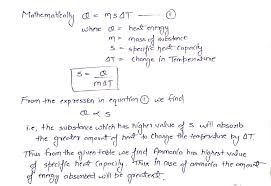 Mathematically Q = msΔT —— ①
where Q = heat energy
m = mass of substance
s = specific heat capacity
ΔT = change in Temperature
S = Q / mΔT
From the expression in equation ① we find
Q ∝ s
i.e, the substance which has higher value of s will absorb
the greater amount of heat to change the temperature by ΔT.
Thus from the given table we find Ammonia has highest value
of specific heat capacity. Thus in case of ammonia the amount
of energy absorbed will be greatest.